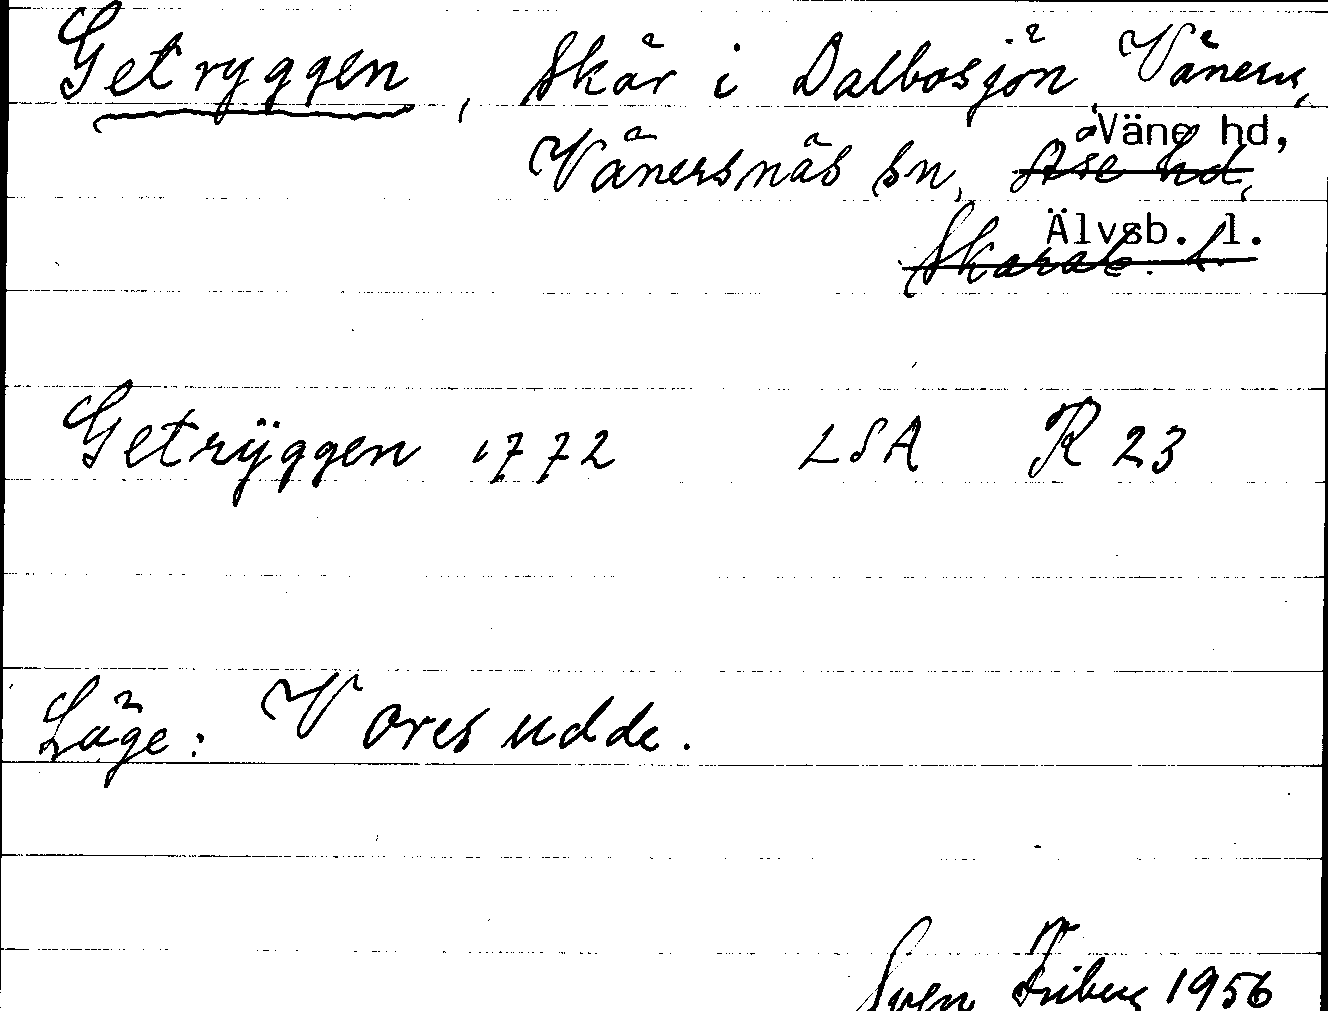 Getryggen, skär i Dalbosjön, Vänern,
Väne hd,
Vänersnäs sn, Åse hd,
Älvsb. l.
Skarab. l.
Getrÿggen 1772 LSA R 23
Läge: V Ores udde.
Sven Friberg 1956